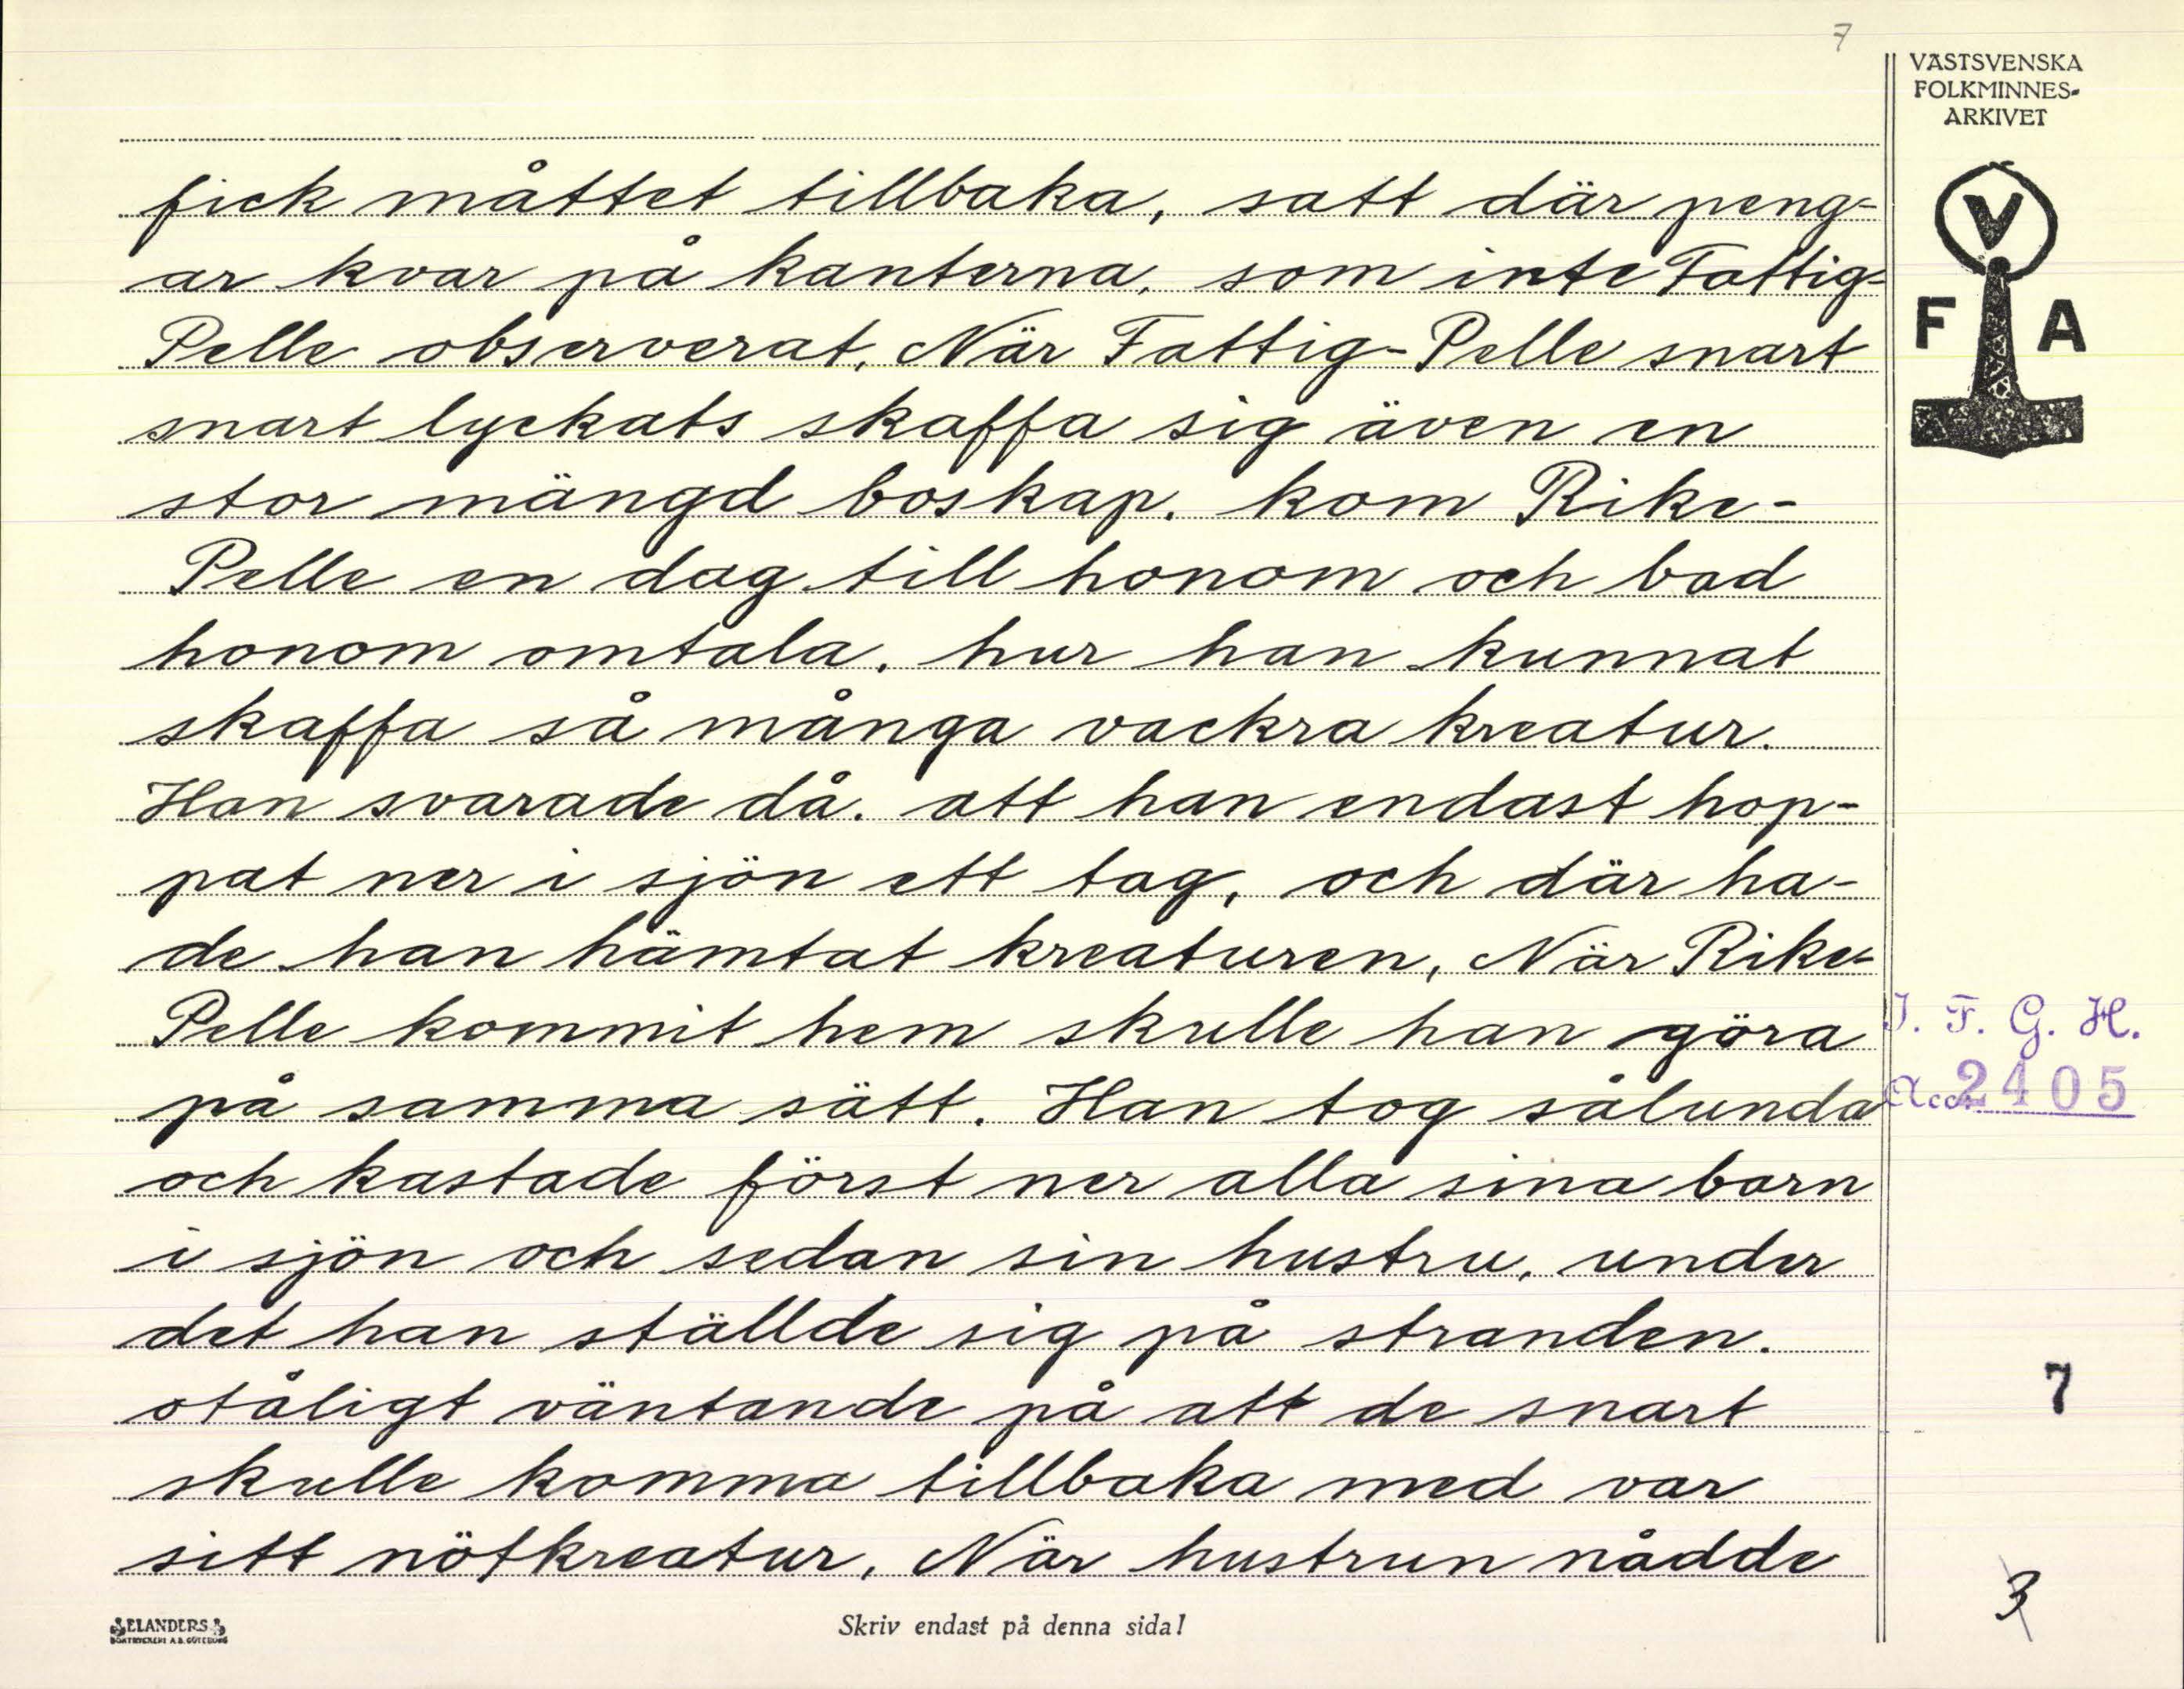 7
VÄSTSVENSKA
FOLKMINNES-
ARKIVET
V
F A
fick måttet tillbaka, satt där peng-
ar kvar på kanterna, som inte Fattig-
Pelle observerat, När Fattig-Pelle snart
snart lyckats skaffa sig även en
stor mängd boskap. kom Rike-
Pelle en dag till honom och bad
honom omtala. hur han kunnat
skaffa så många vackra kreatur.
Han svarade då. att han endast hop-
pat ner i sjön ett tag, och där ha-
de han hämtat kreaturen, När Rike-
Pelle kommit hem skulle han göra
på samma sätt. Han tog sålunda
och kastade först ner alla sina barn
i sjön och sedan sin hustru, under
det han ställde sig på stranden.
otåligt väntande på att de snart
skulle komma tillbaka med var
sitt nötkreatur, När hustrun nådde
I. F. G. H.
Acc. 2405
7
3
ELANDERS
BOKTRYCKERI A.B. GÖTEBORG
Skriv endast på denna sida!